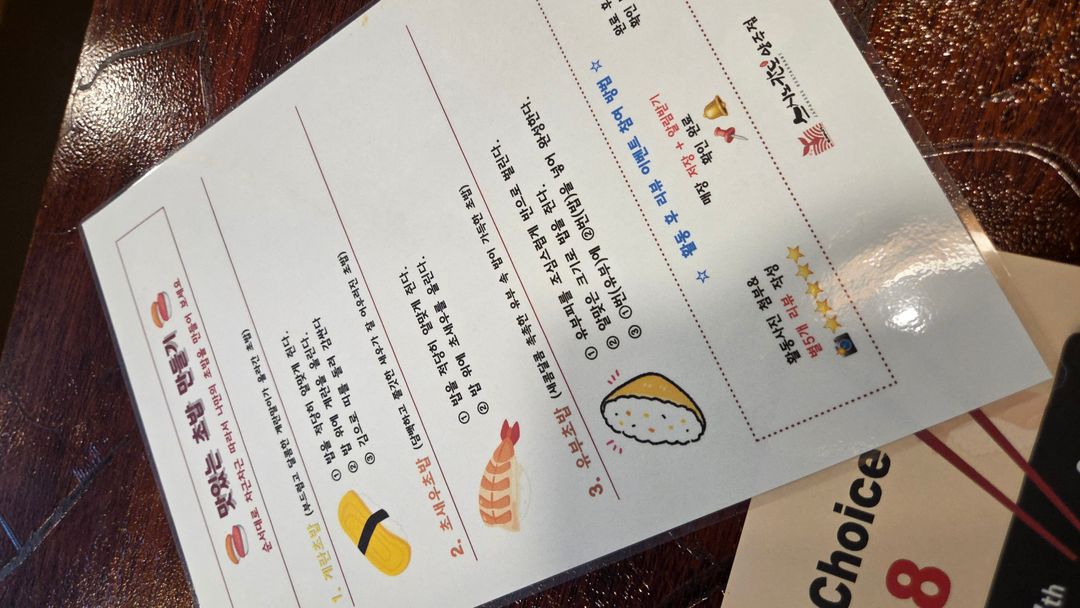 맛있는 초밥 만들기
순서대로 차근차근 따라서 나만의 초밥을 만들어 보세요
1. 계란초밥
(부드럽고 달콤한 계란말이가 올라간 초밥)
① 밥을 적당히 알맞게 쥔다.
② 밥 위에 계란을 올린다.
③ 김으로 띠를 둘러 감싼다
2. 초새우초밥 (담백하고 쫄깃한 새우가 잘 어우러진 초밥)
① 밥을 적당히 알맞게 쥔다.
② 밥 위에 초새우를 올린다.
3. 유부초밥 (새콤달콤 촉촉한 유부 속 밥이 가득한 초밥)
① 유부피를 조심스럽게 반으로 벌린다.
② 알맞은 크기로 밥을 쥔다.
③ ①번(유부)에 ②번(밥)을 넣어 완성한다.
☆ 활동 후 리뷰 이벤트 참여 방법 ☆
활동사진 첨부&
별5개 리뷰 작성
매장 저장 + 알림받기
확인 완료
완료 후
확인
Choice
8
th